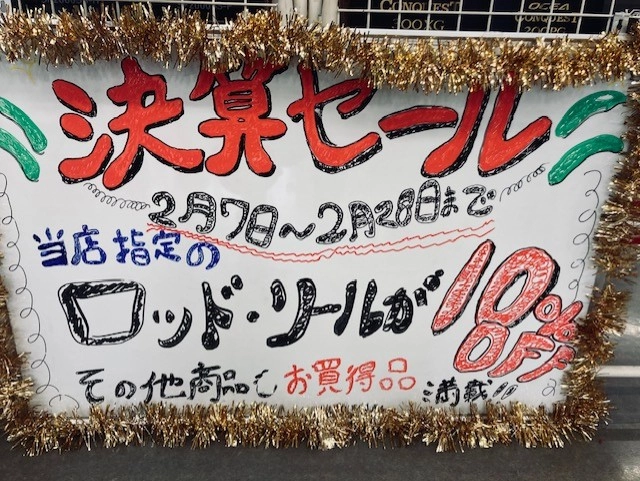 CONQUEST
300XG
OCEA
CONQUEST
200PG
決算セール
2月7日～2月28日まで
当店指定の
ロッド・リールが10%OFF
その他商品もお買得品満載!!